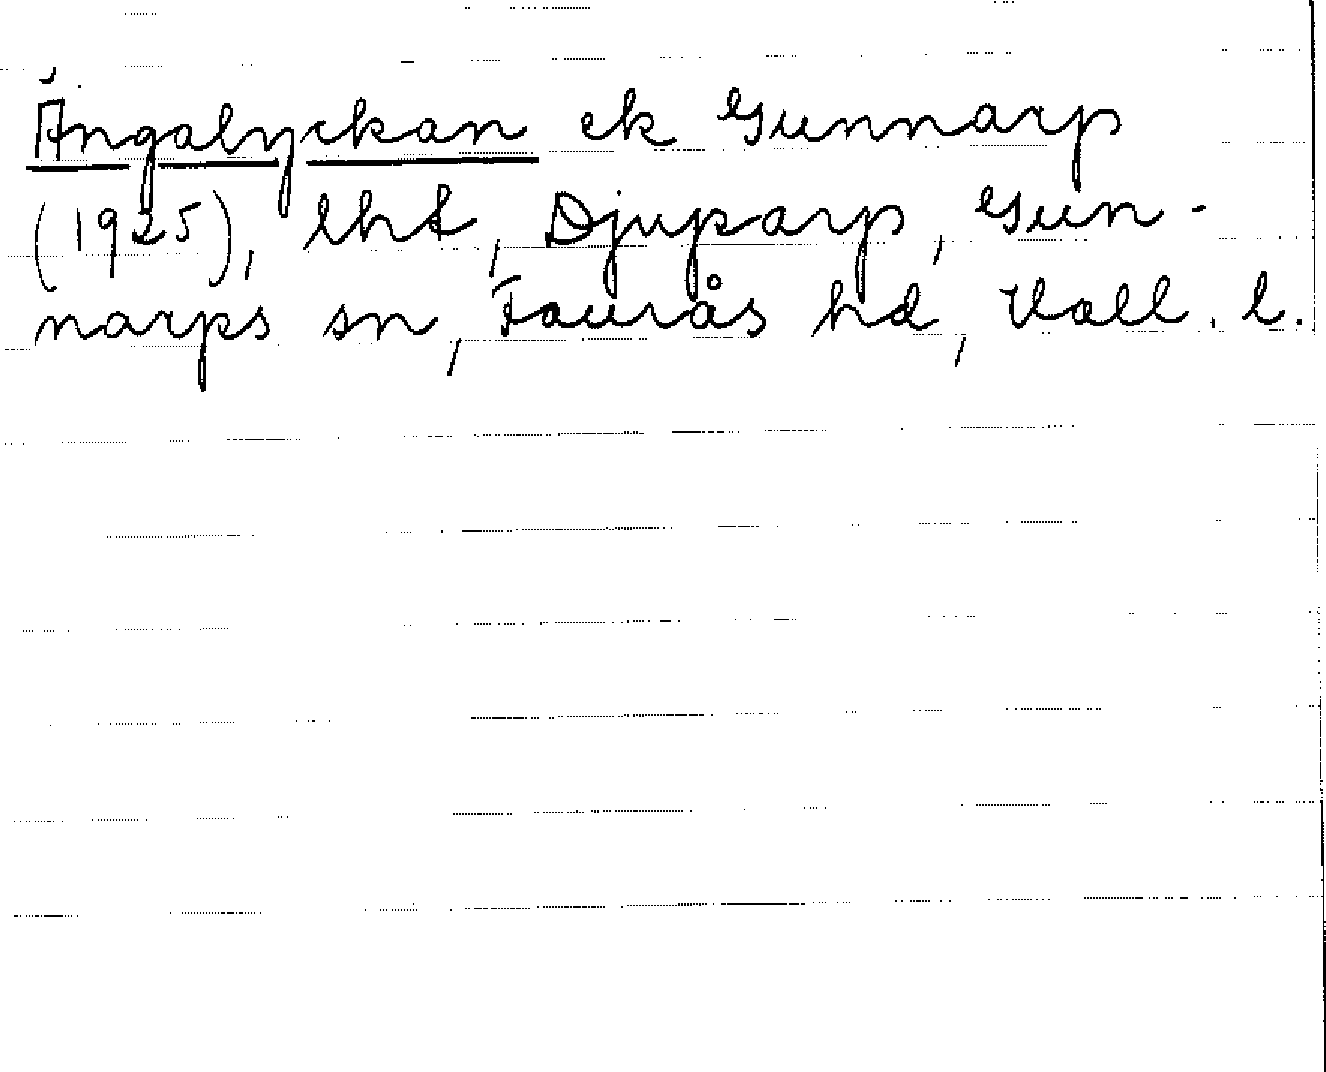 Ängalyckan ek Gunnarp
(1925), lht, Djuparp, Gun-
narps sn, Faurås hd, Hall. l.